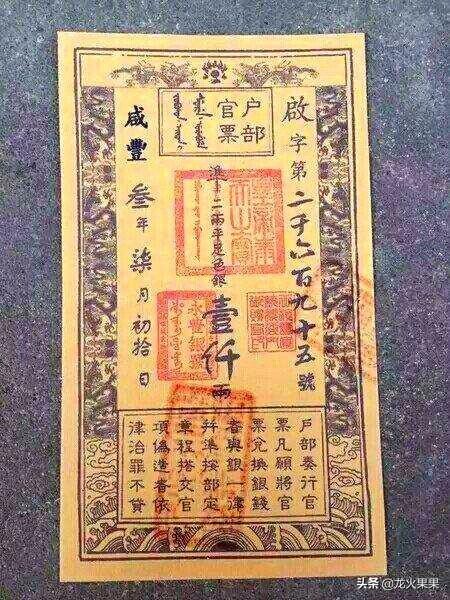 户部
官票
啟字第二千六百九十五號
準二兩平足色銀壹仟兩
咸豐叁年柒月初拾日
永豐銀號
戶部奏行官
票凡願將官
票兌換銀錢
者與銀一律
并準按部定
章程搭交官
項偽造者依
律治罪不貸
头条 @龙火果果